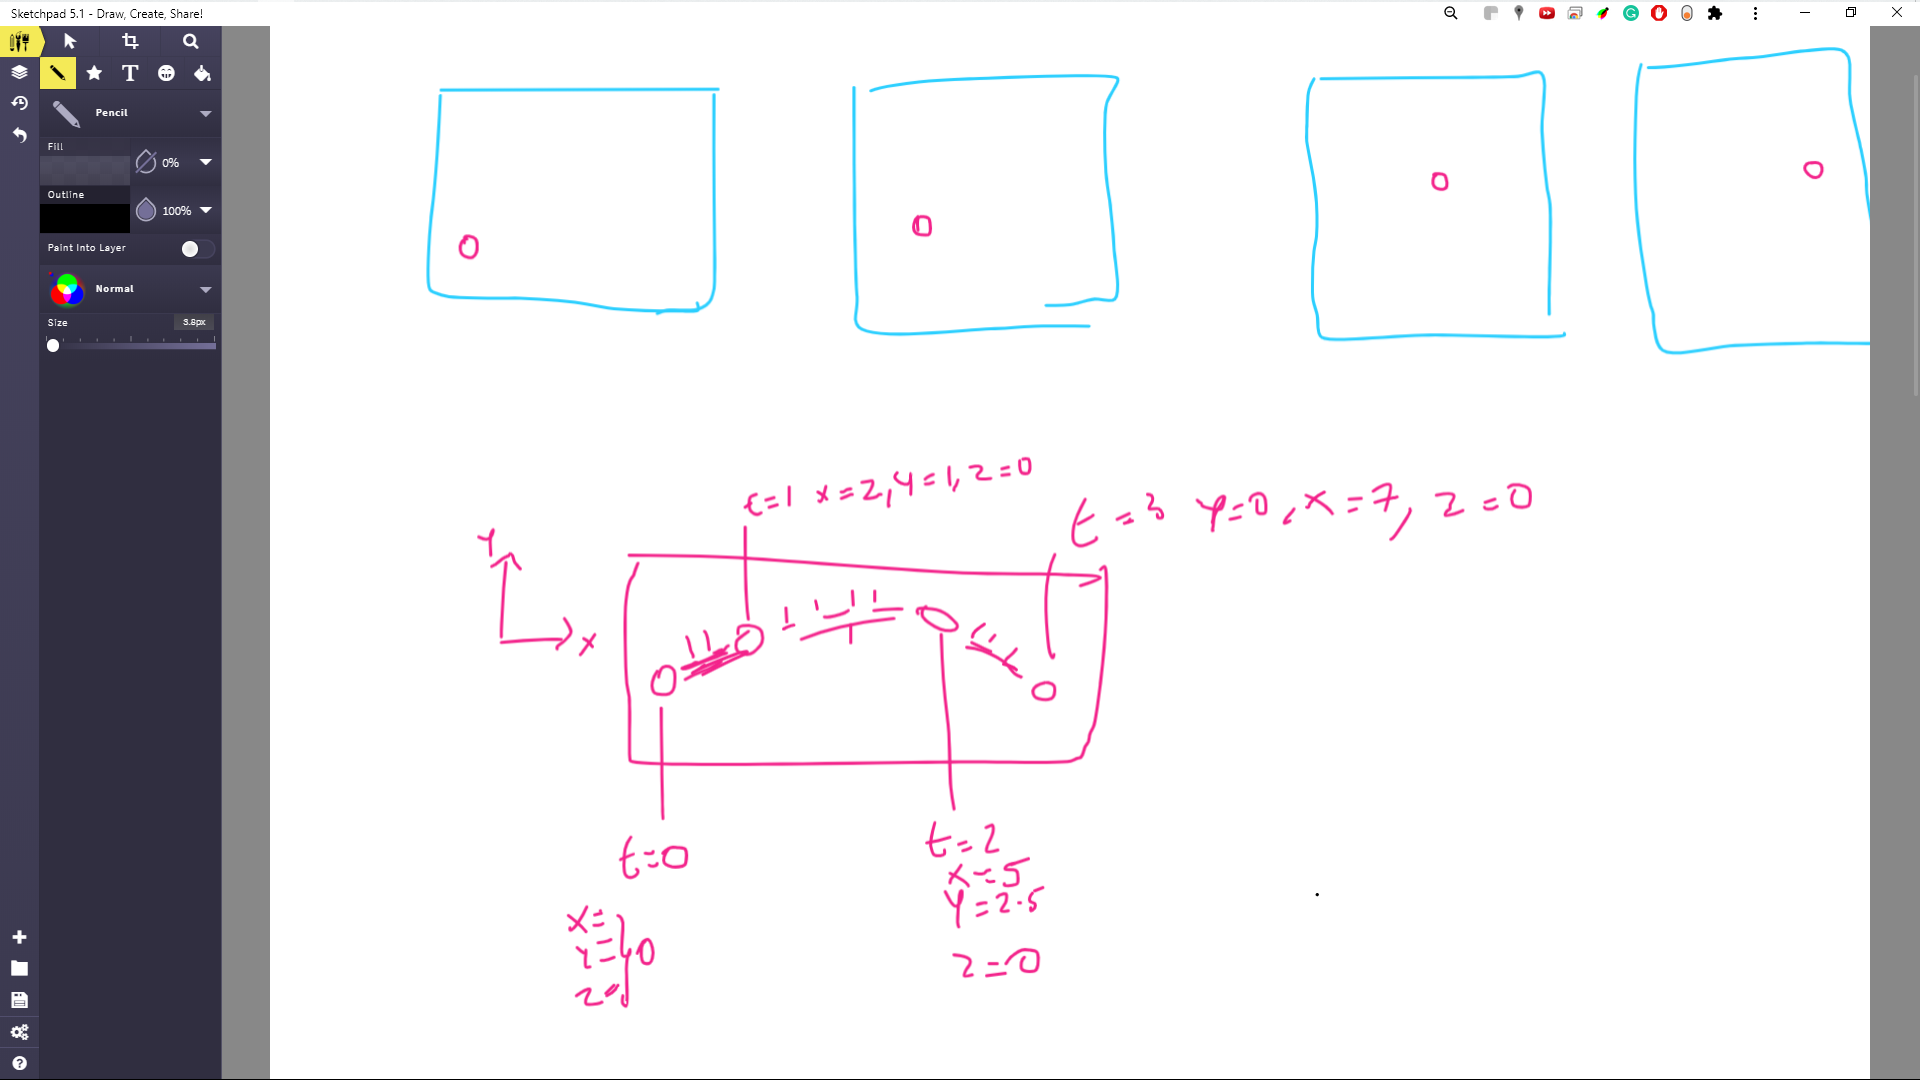 Sketchpad 5.1 - Draw, Create, Share!
Pencil
Fill
0%
Outline
100%
Paint Into Layer
Normal
Size
3.8px
t=1 x=2, y=1, z=0
t=3 y=0, x=7, z=0
Y
X
t=0
x=
y= 0
z=
t=2
x=5
y=2.5
z=0